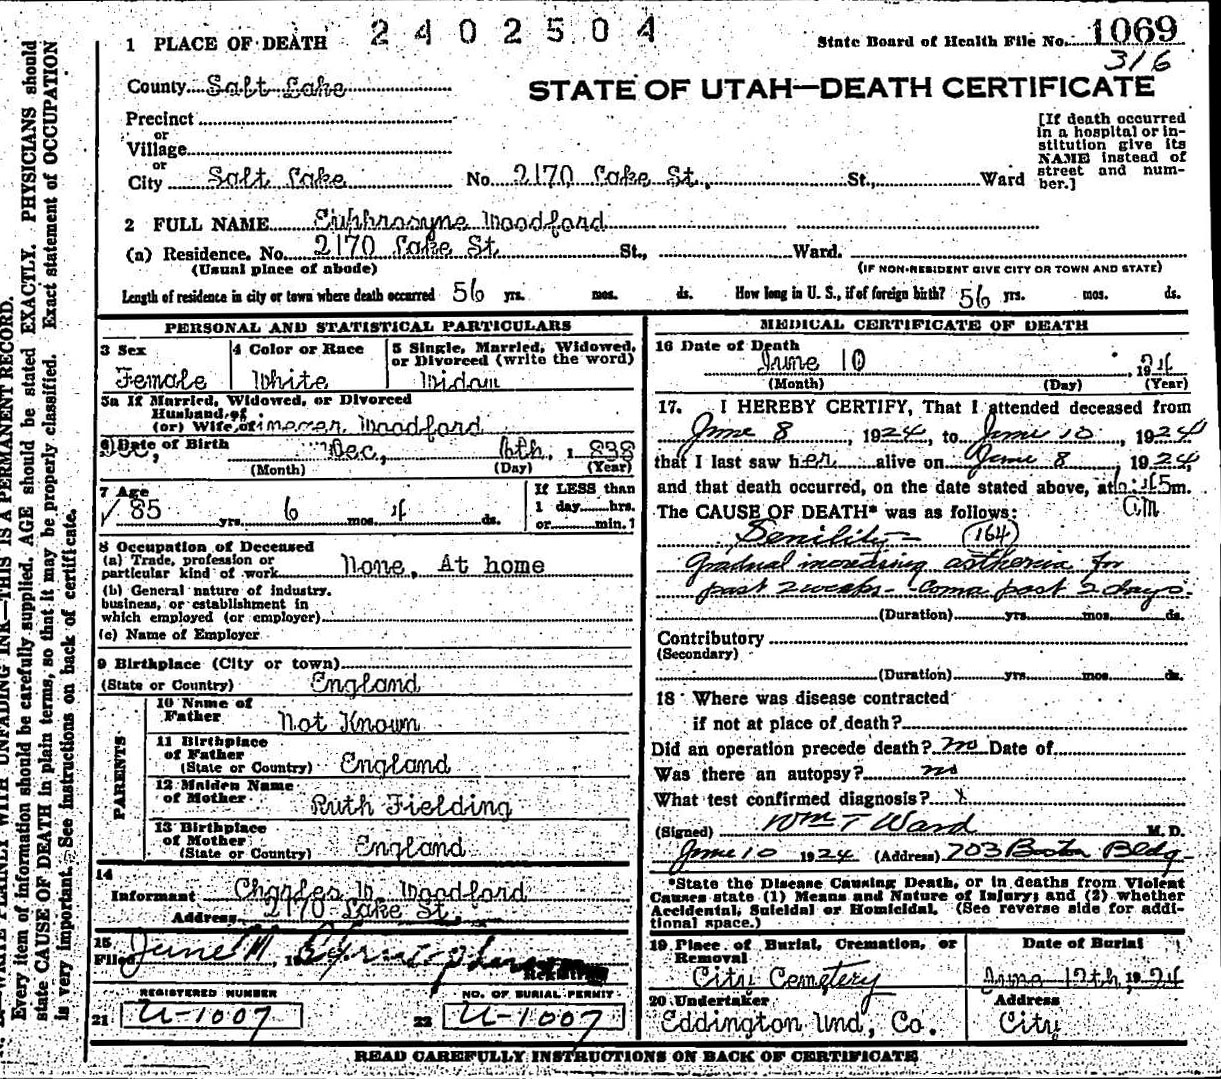 2402504
1 PLACE OF DEATH
State Board of Health File No. 1069
316
County Salt Lake
STATE OF UTAH—DEATH CERTIFICATE
Precinct
or
Village
or
City Salt Lake No. 2170 Lake St., St., Ward
[If death occurred in a hospital or institution give its NAME instead of street and number.]
2 FULL NAME Euphrosyne Woodford
(a) Residence. No. 2170 Lake St. St., Ward.
(Usual place of abode) (IF NON-RESIDENT GIVE CITY OR TOWN AND STATE)
Length of residence in city or town where death occurred 56 yrs. mos. ds. How long in U. S., if of foreign birth? 56 yrs. mos. ds.
PERSONAL AND STATISTICAL PARTICULARS
3 Sex
Female
4 Color or Race
White
5 Single, Married, Widowed,
or Divorced (write the word)
Widow
5a If Married, Widowed, or Divorced
Husband of
(or) Wife of Woodford
6 Date of Birth
Dec, 6th, 1838
(Month) (Day) (Year)
7 Age
85 yrs. 6 mos. 4 ds.
If LESS than
1 day hrs.
or min.?
8 Occupation of Deceased
(a) Trade, profession or
particular kind of work None, At home
(b) General nature of industry,
business, or establishment in
which employed (or employer)
(c) Name of Employer
9 Birthplace (City or town)
(State or Country) England
PARENTS
10 Name of
Father Not Known
11 Birthplace
of Father
(State or Country) England
12 Maiden Name
of Mother Ruth Fielding
13 Birthplace
of Mother
(State or Country) England
14
Informant Charles W. Woodford
Address 2170 Lake St.
15
Filed June 11, 19
Registrar
REGISTERED NUMBER
21 U-1007
NO. OF BURIAL PERMIT
22 U-1007
MEDICAL CERTIFICATE OF DEATH
16 Date of Death
June 10 , 1924
(Month) (Day) (Year)
17. I HEREBY CERTIFY, That I attended deceased from
June 8, 1924, to June 10, 1924
that I last saw her alive on June 8, 1924
and that death occurred, on the date stated above, at 6:45m.
am
The CAUSE OF DEATH* was as follows:
Senility 164
Gradual increasing asthenia for
past 2 weeks - Coma past 2 days.
(Duration) yrs. mos. ds.
Contributory
(Secondary)
(Duration) yrs. mos. ds.
18 Where was disease contracted
if not at place of death?
Did an operation precede death? no Date of
Was there an autopsy? no
What test confirmed diagnosis? x
(Signed) Wm T Ward M. D.
June 10 1924 (Address) 703 Boston Bldg
*State the Disease Causing Death, or in deaths from Violent
Causes state (1) Means and Nature of Injury; and (2) whether
Accidental, Suicidal or Homicidal. (See reverse side for addi-
tional space.)
19 Place of Burial, Cremation, or
Removal
City Cemetery
Date of Burial
June 12th, 1924
20 Undertaker
Eddington Und, Co.
Address
City
READ CAREFULLY INSTRUCTIONS ON BACK OF CERTIFICATE
WRITE PLAINLY WITH UNFADING INK—THIS IS A PERMANENT RECORD.
Every item of information should be carefully supplied. AGE should be stated EXACTLY. PHYSICIANS should
state CAUSE OF DEATH in plain terms, so that it may be properly classified. Exact statement of OCCUPATION
is very important. See instructions on back of certificate.